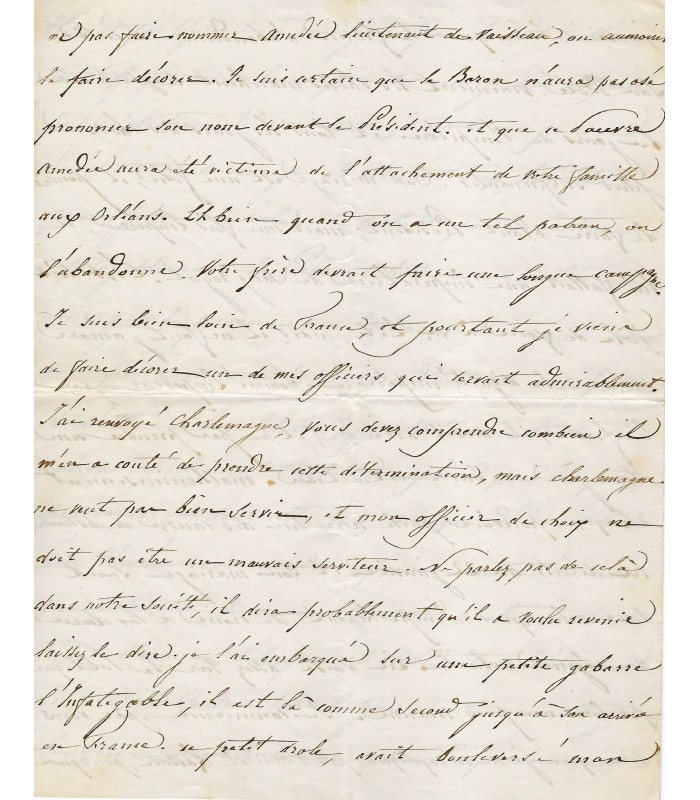 ne pas faire nommer Amédée lieutenant de vaisseau, ou aumoins
le faire décorer. Je suis certain que le Baron n'aura pas osé
prononcer son nom devant le Président. et que ce pauvre
Amédée aura été victime de l'attachement de votre famille
aux Orléans. Eh bien quand on a un tel patron, on
l'abandonne. Votre frère devrait faire une longue campagne.
Je suis bien loin de France, et pourtant je viens
de faire décorer un de mes officiers qui servait admirablement.
J'ai renvoyé Charlemagne, vous devez comprendre combien il
m'en a couté de prendre cette détermination, mais charlemagne
ne veut pas bien servir, et mon officier de choix ne
doit pas être un mauvais serviteur. Ne parlez pas de cela
dans notre société, il dira probablement qu'il a voulu revenir
laissez le dire. je l'ai embarqué sur une petite gabarre
l'Infatigable, il est là comme second jusqu'à son arrivée
en France. ce petit drole, avait bouleversé mon